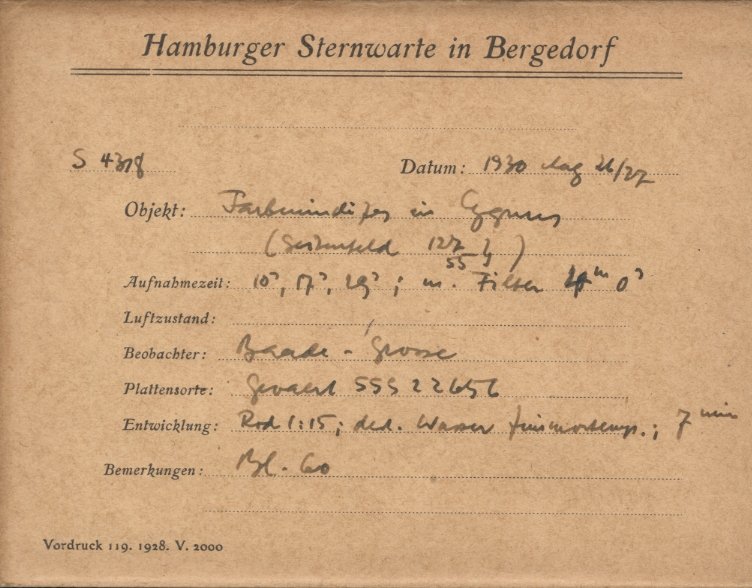 Hamburger Sternwarte in Bergedorf
S 4318 Datum: 1930 Aug 26/27
Objekt: Farbenindizes in Cygnus
(
Aufnahmezeit: 10ˢ, 17ˢ, 29ˢ; m. Filter 4ᵐ 0ˢ
Luftzustand:
Beobachter: Baade - Grosse
Plattensorte: Gevaert SSS 22656
Entwicklung: Rod 1:15; ded. Wasser ; 7 min
Bemerkungen: Bl. 60
Vordruck 119. 1928. V. 2000